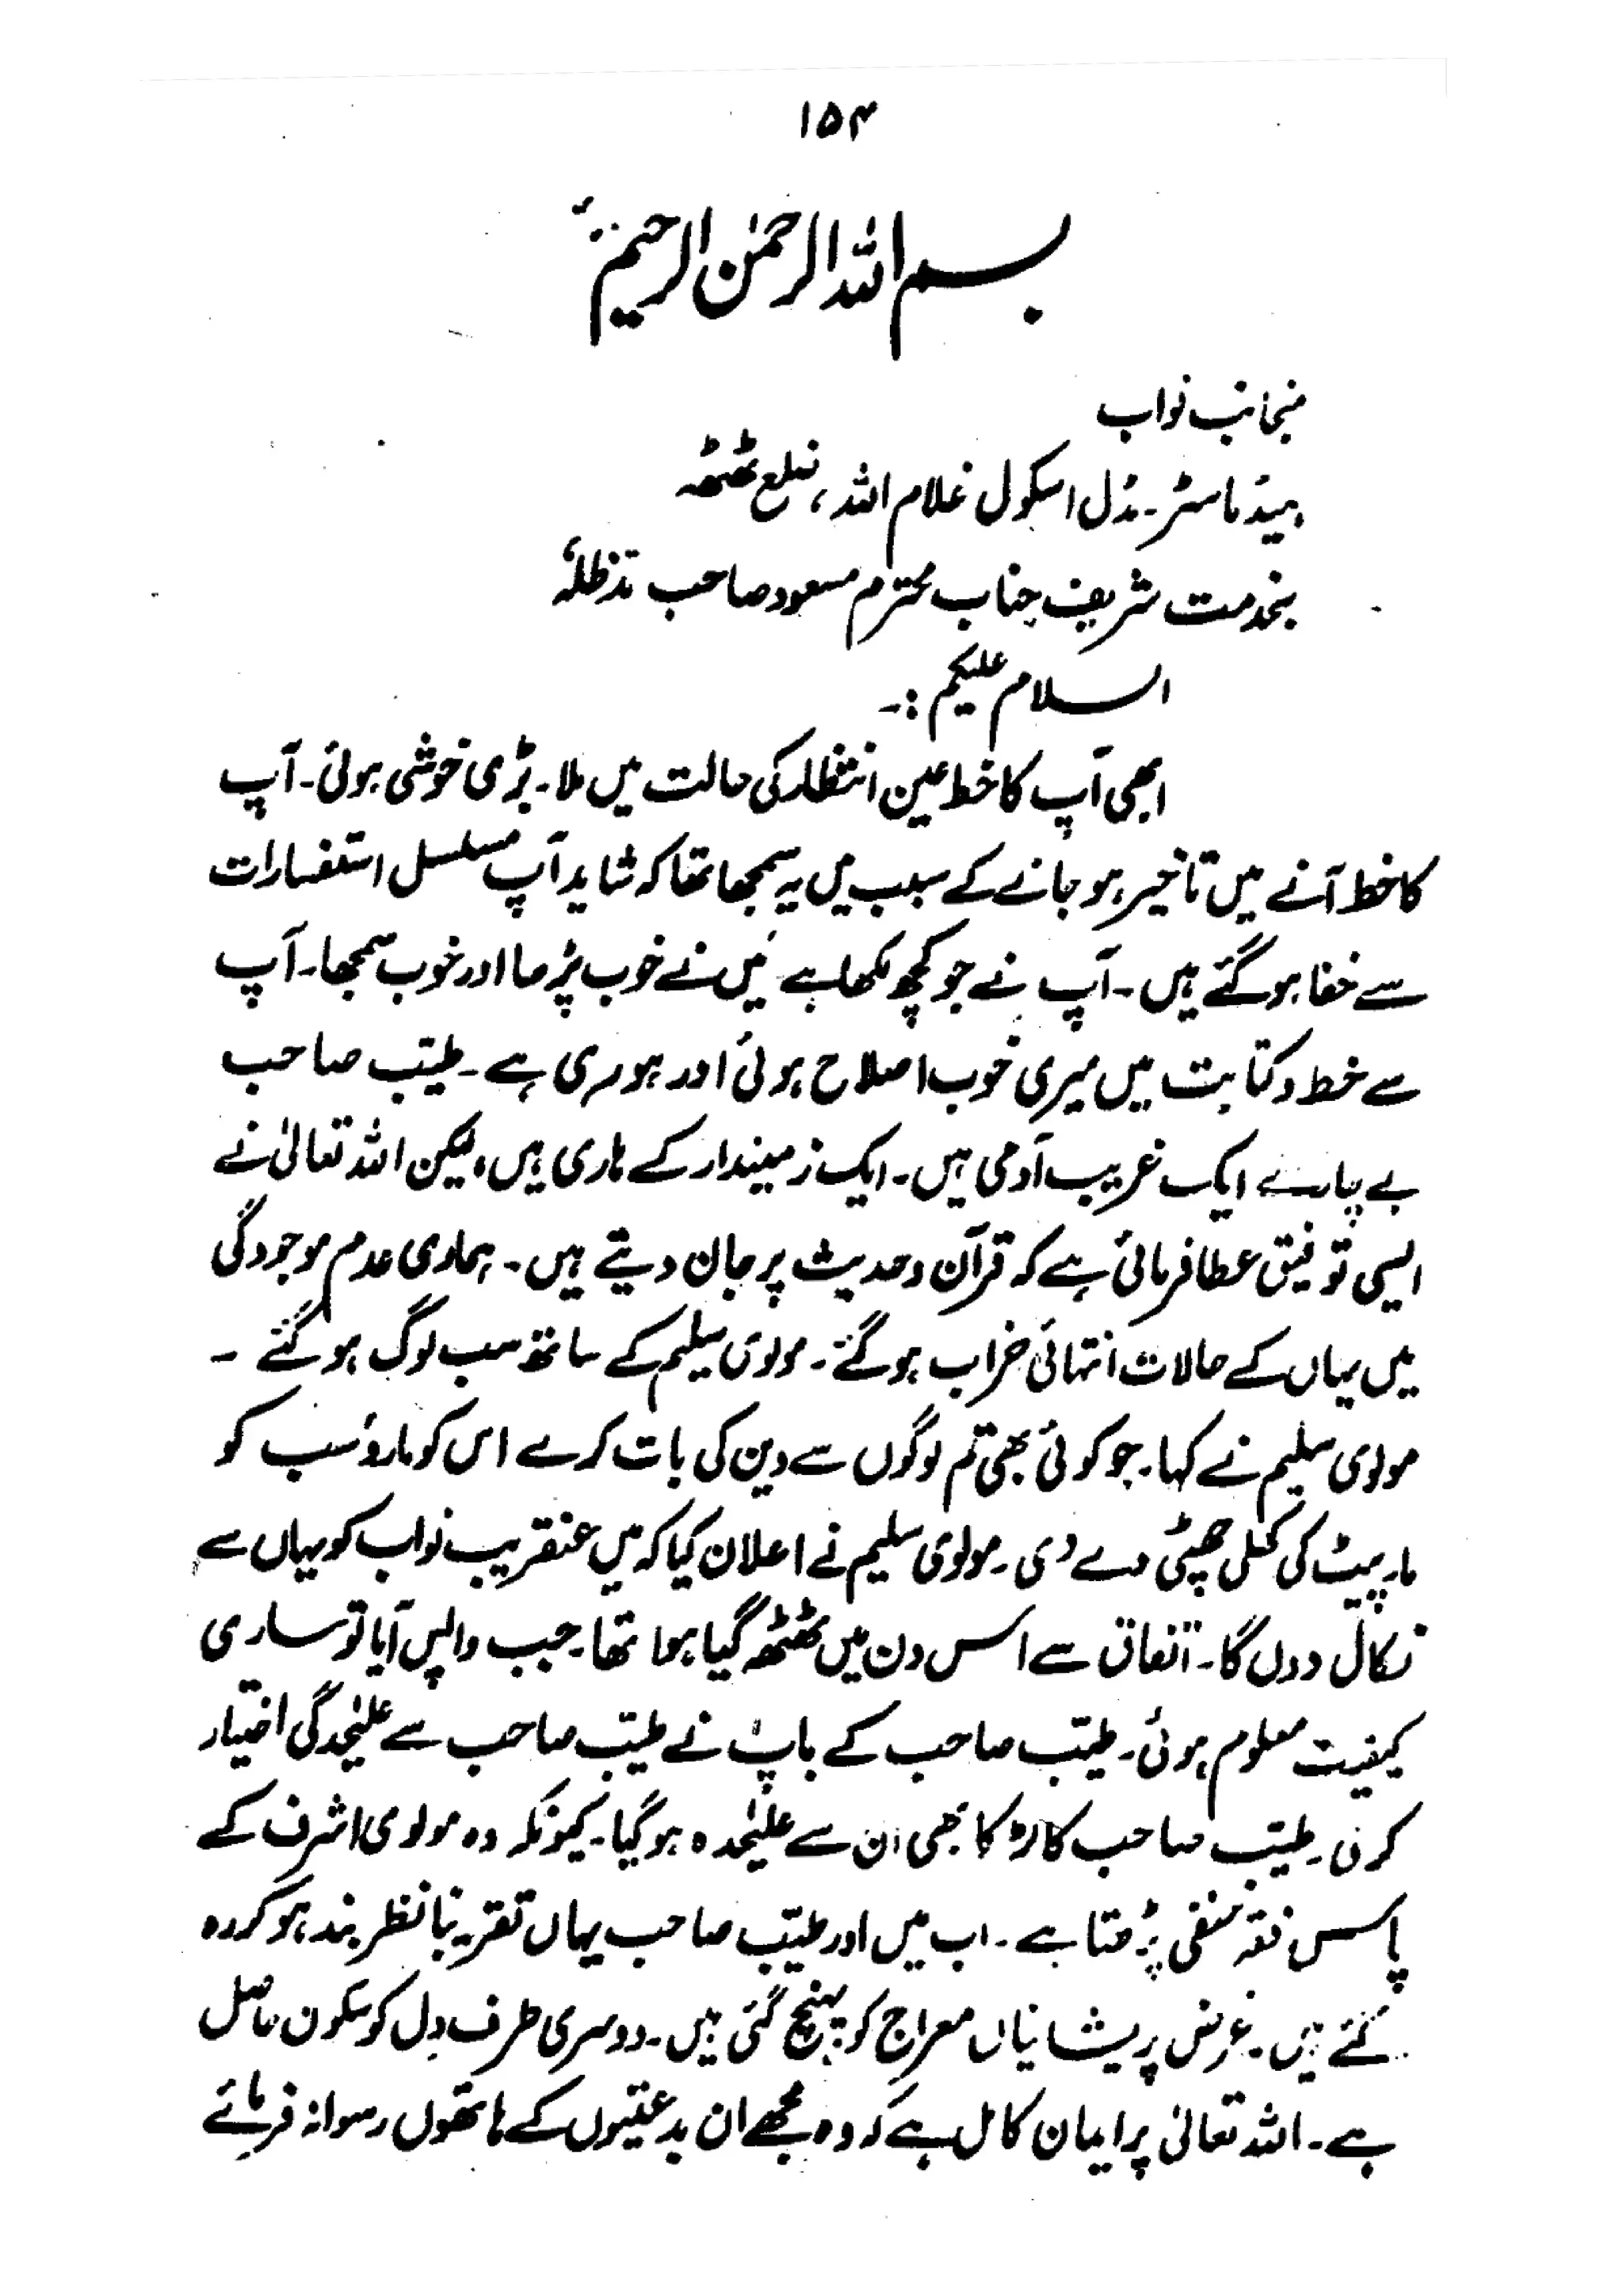 ۱۵۴
بسم اللہ الرحمٰن الرحیم
منجانب نواب
ہیڈ ماسٹر۔ مڈل اسکول غلام اللہ، ضلع ٹھٹھہ
بخدمت شریف جناب محترم مسعود صاحب مدظلہٗ
السلام علیکم :۔
ابھی آپ کا خط عین انتظار کی حالت میں ملا۔ بڑی خوشی ہوئی۔ آپ
کا خط آنے میں تاخیر ہو جانے کے سبب میں یہ سمجھا تھا کہ شاید آپ مسلسل استفسارات
سے خفا ہو گئے ہیں۔ آپ نے جو کچھ لکھا ہے میں نے خوب پڑھا اور خوب سمجھا۔ آپ
سے خط و کتابت میں میری خوب اصلاح ہوئی اور ہو رہی ہے۔ طیّب صاحب
بے چارے ایک غریب آدمی ہیں۔ ایک زمیندار کے ہاری ہیں، لیکن اللہ تعالیٰ نے
ایسی توفیق عطا فرمائی ہے کہ قرآن و حدیث پر جان دیتے ہیں۔ ہماری عدم موجودگی
میں یہاں کے حالات انتہائی خراب ہو گئے۔ مولوی سلیم کے ساتھ سب لوگ ہو گئے ۔
مولوی سلیم نے کہا۔ جو کوئی بھی تم لوگوں سے دین کی بات کرے اس کو مارو، سب کو
مار پیٹ کی کھلی چھٹی دے دی۔ مولوی سلیم نے اعلان کیا کہ میں عنقریب نواب کو یہاں سے
نکال دوں گا۔ اتفاق سے اس دن میں ٹھٹھہ گیا ہوا تھا۔ جب واپس آیا تو ساری
کیفیت معلوم ہوئی۔ طیّب صاحب کے باپ نے طیّب صاحب سے علیٰحدگی اختیار
کر لی۔ طیّب صاحب کا لڑکا بھی ان سے علیٰحدہ ہو گیا۔ کیونکہ وہ مولوی اشرف کے
پاس فقہ حنفی پڑھتا ہے۔ اب میں اور طیّب صاحب یہاں تقریباً نظر بند ہو کر رہ
گئے ہیں۔ غرض پریشانیاں معراج کو پہنچ گئی ہیں۔ دوسری طرف دل کو سکون حاصل
ہے۔ اللہ تعالیٰ پر ایمان کامل ہے کہ وہ مجھے ان بدعتیوں کے ہاتھوں رسوا نہ فرمائے